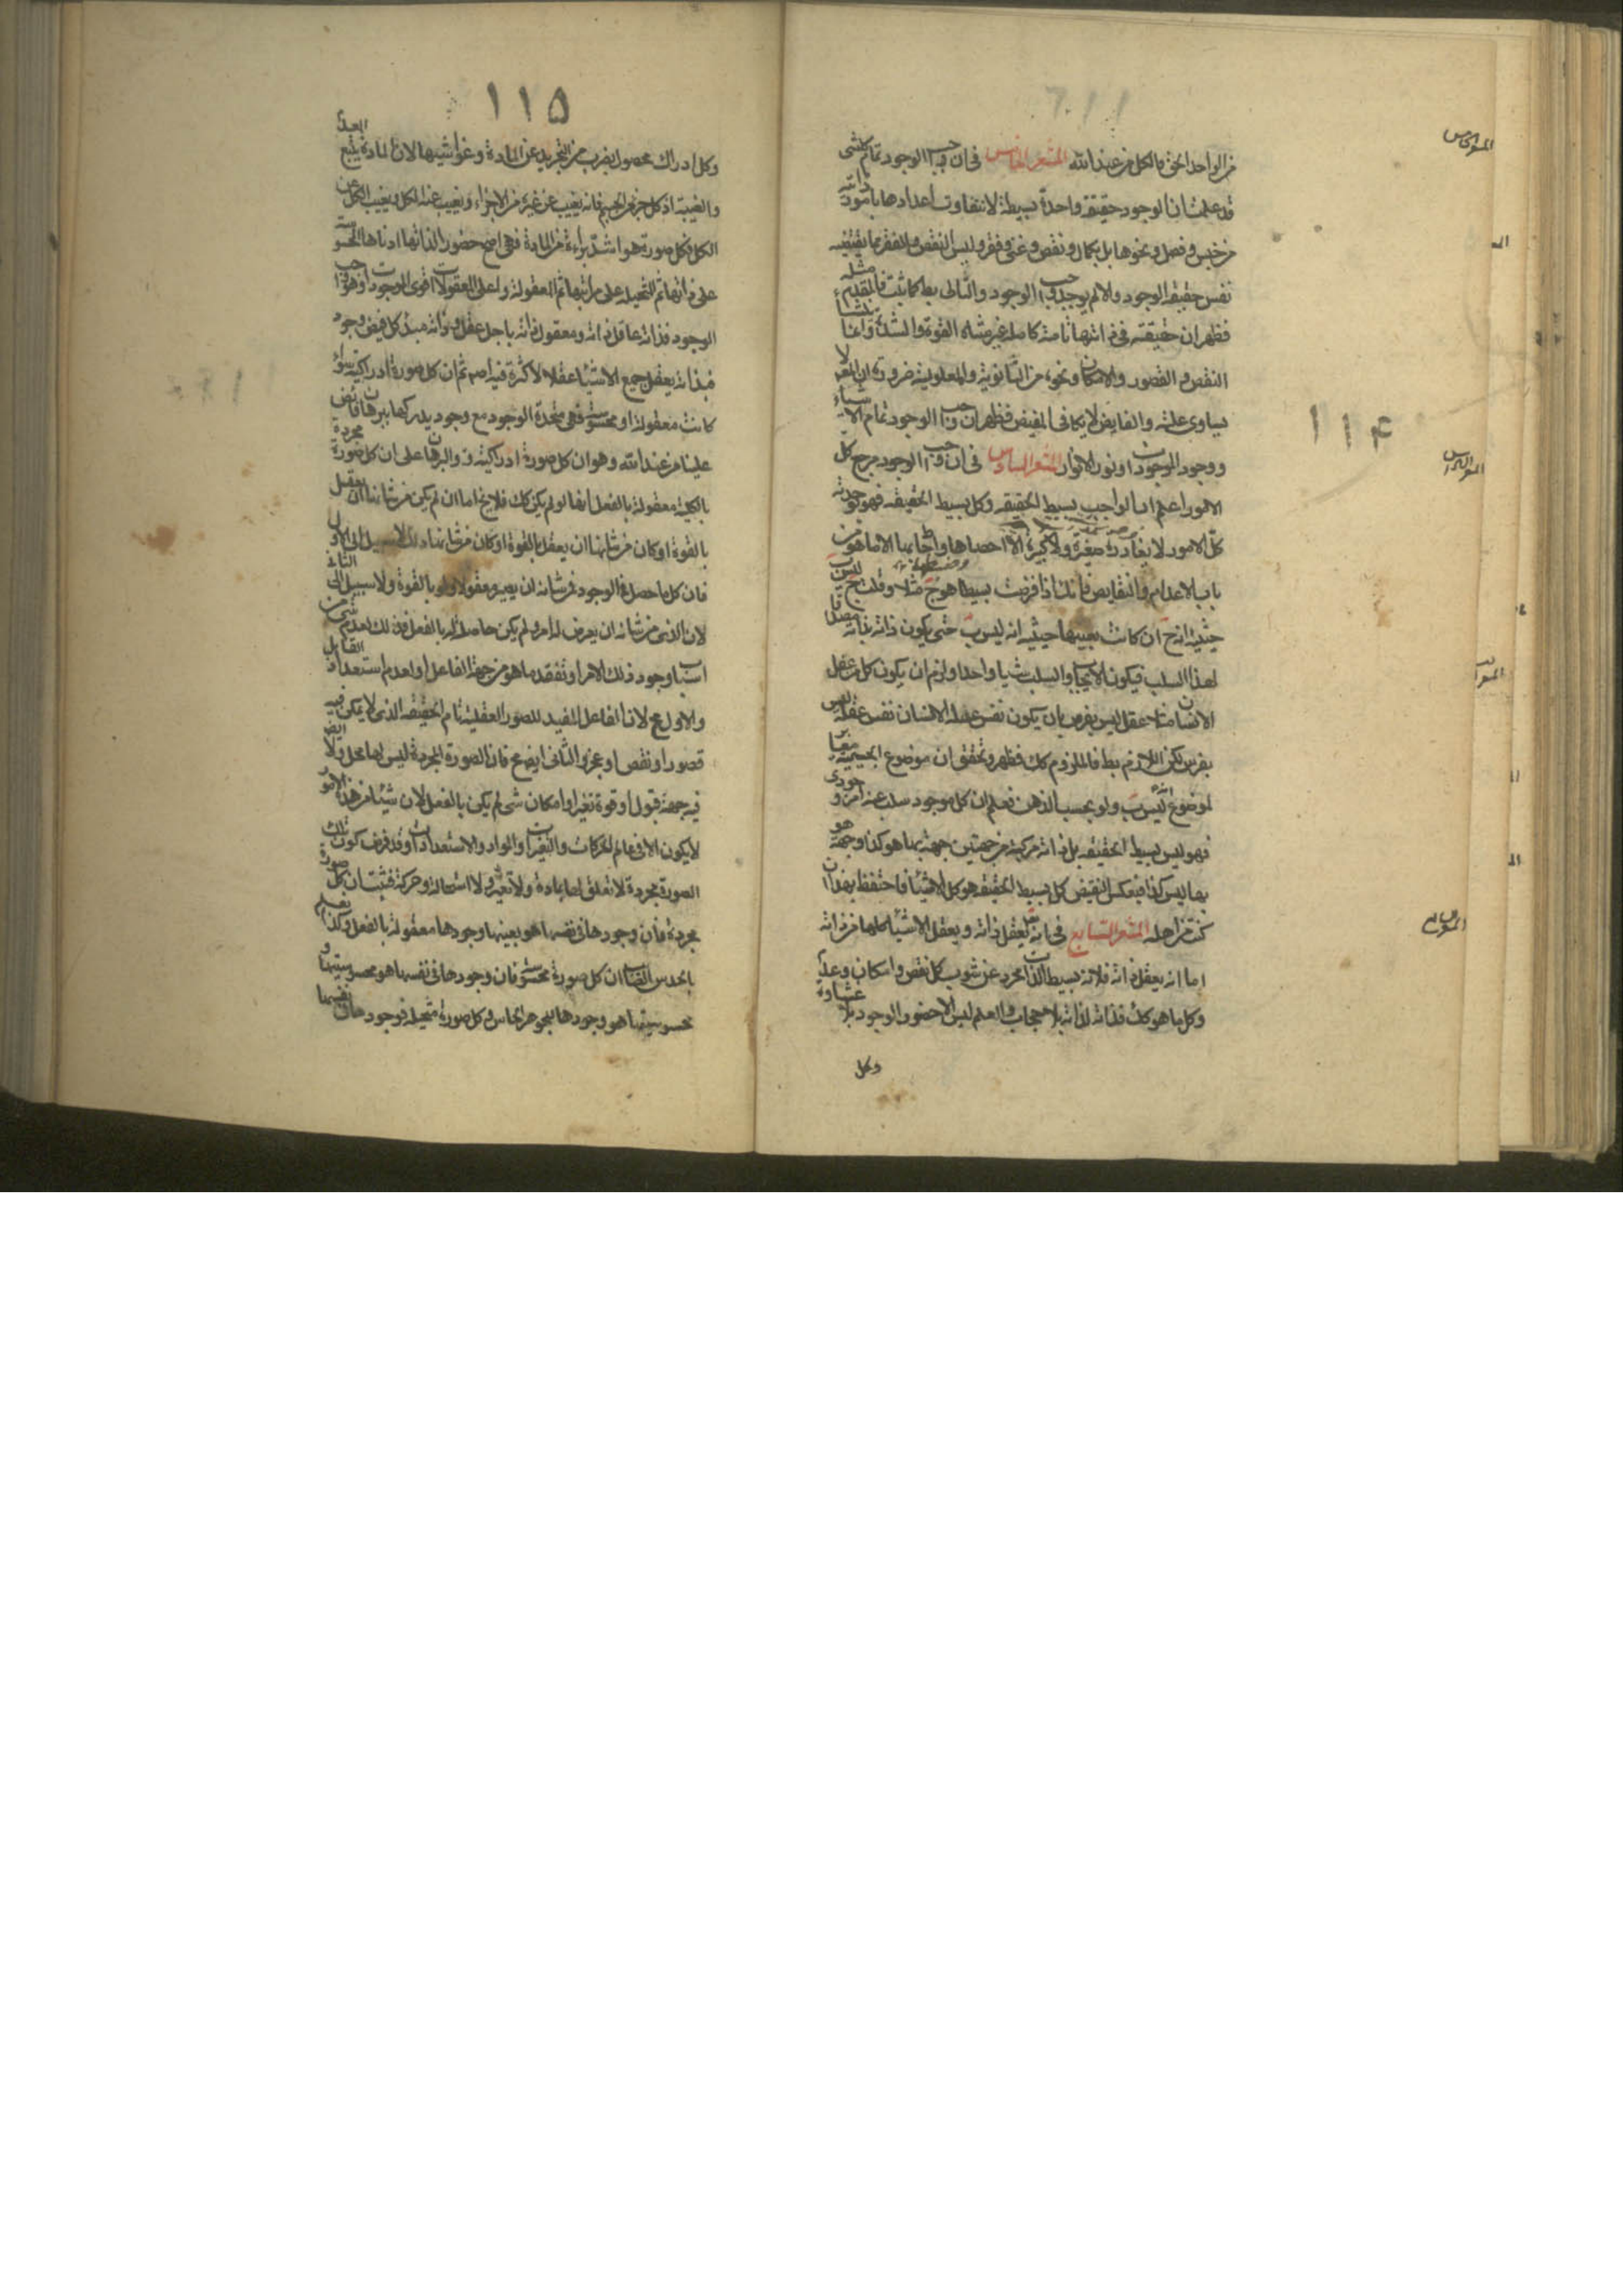 من الواحد الحق فالكل من عند الله المشعر الخامس في ان وا جب الوجود تمام كل شي
قد علمت ان الوجود حقيقة واحدة بسيطة لا يتفاوت اعدادها بامور ذاتية
من جنس وفصل ونحوها بل بكمال ونقص وغنى وفقر وليس النقص والفقر مما يقتضيه
نفس حقيقة الوجود والا لم يوجد واجب الوجود والتالي بط كما ثبت فالمقدم مثله
فظهر ان حقيقته في ذاتها تامة كاملة غير متناه القوة والشدة وانما ينشأ
النقص والقصور والامكان ونحوه من الثانوية والمعلولية ضرورة ان المعلول لا
يساوي علته والفايض لا يكافى المفيض فظهر ان واجب الوجود تمام الاشياء
ووجود الموجودات ونور الانوار المشعر السادس في ان واجب الوجود مرجع كل
الامور اعلم ان الواجب بسيط الحقيقه وكل بسيط الحقيقه فهو بوحدته
كل الامور لا يغادر صغيرة ولا كبيرة الا احصاها واحاط بها الا ما هو من
باب الاعدام والنقايص فانك اذا فرضت بسيطا هو ج مثلا وقلت ج ليس ب
حيثية انه ج ان كانت بعينها حيثية انه ليس ب حتى يكون ذاته بذاته مصداقا
لهذا السلب فيكون الايجاب والسلب شيا واحدا ولزم ان يكون كل من عقل
الانسان مثلا عقل ليس بفرس بان يكون نفس عقله الانسان نفس عقله ليس
بفرس لكن اللازم بط فالملزوم كك فظهر وتحقق ان موضوع الجيمية مغاير
لموضوع انه ليس ب ولو بحسب الذهن فعلم ان كل موجود سلب عنه امر وجودى
فهو ليس بسيط الحقيقه بل ذاته مركبة من جهتين جهة بها هو كذا وجهة هو
بها ليس كذا فبعكس النقيض كل بسيط الحقيقه هو كل الاشياء فاحتفظ بهذا ان
كنت من اهله المشعر السابع في انه تعالى يعقل ذاته ويعقل الاشياء كلها من ذاته
اما انه يعقل ذاته فلانه بسيط الذات مجرد عن شوب كل نقص وامكان وعدم
وكل ما هو كك فذاته لذاته بلا حجاب والعلم ليس الا حضور الوجود بلا غشاوة
وكل
١١٤
١١٥
وكل ادراك حصوله بضرب من التجريد عن المادة وغواشيها لان المادة منبع العدم
والغيبة اذ كل جزء من الجسم فانه يغيب عن غيره من الاجزاء ويغيب عنه الكل ويغيب الكل عن
الكل فكل صورة هو اشد براءة من المادة فهي اصح حضورا لذاتها ادناها المحسوسة
على ذاتها ثم المتخيله على مراتبها ثم المعقولة واعلى المعقولات اقوى الموجودات وهو واجب
الوجود فذاته عاقل ذاته ومعقول ذاته باجل عقل وذاته مبدء كل فيض وجود
فبذاته يعقل جميع الاشياء عقلا لا كثرة فيه اصلا ثم ان كل صورة ادراكية سواء
كانت معقولة او محسوسة فهي متحدة الوجود مع وجود مدركها ببرهان فائض
علينا من عند الله وهو ان كل صورة ادراكية والبرهان على ان كل صورة مجردة
بالكلية معقولة بالفعل انها لو لم يكن كك فلا يخ اما ان لم يكن من شانها ان يعقل
بالقوة او كان من شانها ان يعقل بالقوة او كان من شانها ذلك لا سبيل الى الاول
فان كل ما حصل في الوجود فمن شانه ان يصير معقولا ولو بالقوة ولا سبيل الى الثاني
لان الذى من شانه ان يعرض له امر ولم يكن حاصلا له بالفعل فذلك لعدم شي من
اسباب وجود ذلك الامر او تفقد ما هو من جهة الفاعل او لعدم استعداد القابل
والاول مح لان الفاعل المفيد للصور العقلية تام الحقيقه الذى لا يمكن فيه
قصور او نقص او عجز والثانى ايض مح فان الصورة المجردة ليس لها محل ولا ايض
فيه جهة قبول او قوة تغير او امكان شي لم يكن بالفعل لان شيئا من هذه الامور
لا يكون الا في عالم الحركات والتغيرات والمواد والاستعدادات وقد فرض كون تلك
الصورة مجردة لا تعلق لها بمادة ولا تغير ولا استحالة وحركة فثبت ان كل صورة
مجردة فان وجودها في نفسها هو بعينها وجودها معقولة بالفعل وكذا نعلم
بالحدس الصائب ان كل صورة محسوسة فان وجودها في نفسها هو محسوسيتها و
محسوسيتها هو وجودها لجوهر الحاس وكل صورة متخيلة فوجودها في نفسها